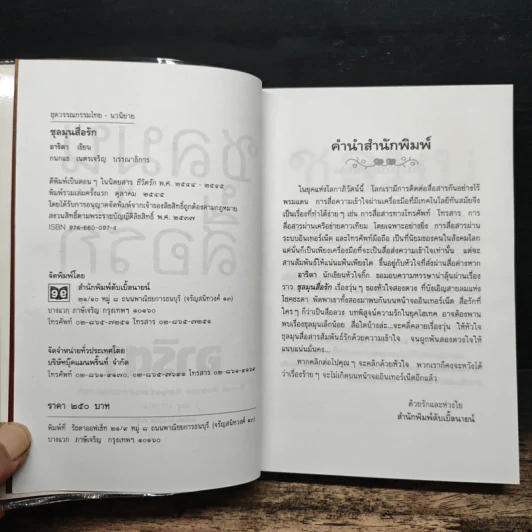 ชุดวรรณกรรมไทย - นวนิยาย
ชุลมุนสื่อรัก
อาริตา เขียน
กนกแข เนตรเจริญ บรรณาธิการ
ตีพิมพ์เป็นตอน ๆ ในนิตยสาร ชีวิตรัก พ.ศ. ๒๕๔๔ - ๒๕๔๕
พิมพ์รวมเล่มครั้งแรก ตุลาคม ๒๕๔๕
โดยได้รับการอนุญาตจัดพิมพ์จากเจ้าของลิขสิทธิ์ถูกต้องตามกฎหมาย
สงวนลิขสิทธิ์ตามพระราชบัญญัติลิขสิทธิ์ พ.ศ. ๒๕๓๗
ISBN 974-660-097-4
จัดพิมพ์โดย
สำนักพิมพ์ดับเบิ้ลนายน์
๒๑/๑๐ หมู่ ๘ ถนนพาณิชยการธนบุรี (จรัญสนิทวงศ์ ๑๓)
บางแวก ภาษีเจริญ กรุงเทพฯ ๑๐๑๖๐
โทรศัพท์ ๐๒-๘๖๕-๗๒๕๑ โทรสาร ๐๒-๘๖๕-๗๒๕๑
จัดจำหน่ายทั่วประเทศโดย
บริษัทบุ๊คแมนพริ้นท์ จำกัด
ราคา ๒๕๐ บาท
บางแวก ภาษีเจริญ กรุงเทพฯ ๑๐๑๖๐
คำนำสำนักพิมพ์
ในยุคแห่งโลกาภิวัตน์นี้ โลกเรามีการติดต่อสื่อสารกันอย่างไร้
พรมแดน การสื่อความเข้าใจผ่านเครื่องมือที่มีเทคโนโลยีทันสมัยจึง
เป็นเรื่องที่ทำได้ง่าย ๆ เช่น การสื่อสารทางโทรศัพท์ โทรสาร การ
สื่อสารผ่านเครือข่ายดาวเทียม โดยเฉพาะอย่างยิ่ง การสื่อสารผ่าน
ระบบอินเทอร์เน็ต และโทรศัพท์มือถือ เป็นที่นิยมของคนในสังคมโลก
แต่นั่นก็เป็นเพียงเครื่องมือที่จะเป็นสื่อส่งความเข้าใจเท่านั้น แต่จะ
สานสัมพันธ์ให้แน่นแฟ้นเพียงใด ขึ้นอยู่กับหัวใจที่ส่งผ่านสื่อต่างหาก
อาริตา นักเขียนหัวใจกิ๊ก ขอมอบความหรรษาน่าลุ้นผ่านเรื่อง
ราว ชุลมุนสื่อรัก เรื่องวุ่นๆ ของหัวใจสองดวง ที่บังเอิญสายลมแห่ง
โชคชะตา พัดพาเขาทั้งสองมาพบกันบนหน้าจออินเทอร์เน็ต สื่อรักที่
ใคร ๆ ก็ว่าเป็นสื่อลวง บทพิสูจน์ความรักในยุคไฮเทค อาจต้องพาน
พบเรื่องชุลมุนเล็กน้อย
หากคลิกต่อไปคุณๆ จะคลิกด้วยหัวใจ พวกเราก็คงจะหวังได้
ว่าเรื่องร้ายๆ จะไม่เกิดบนหน้าจออินเทอร์เน็ตอีกแล้ว
ด้วยรักและห่วงใย
สำนักพิมพ์ดับเบิ้ลนายน์